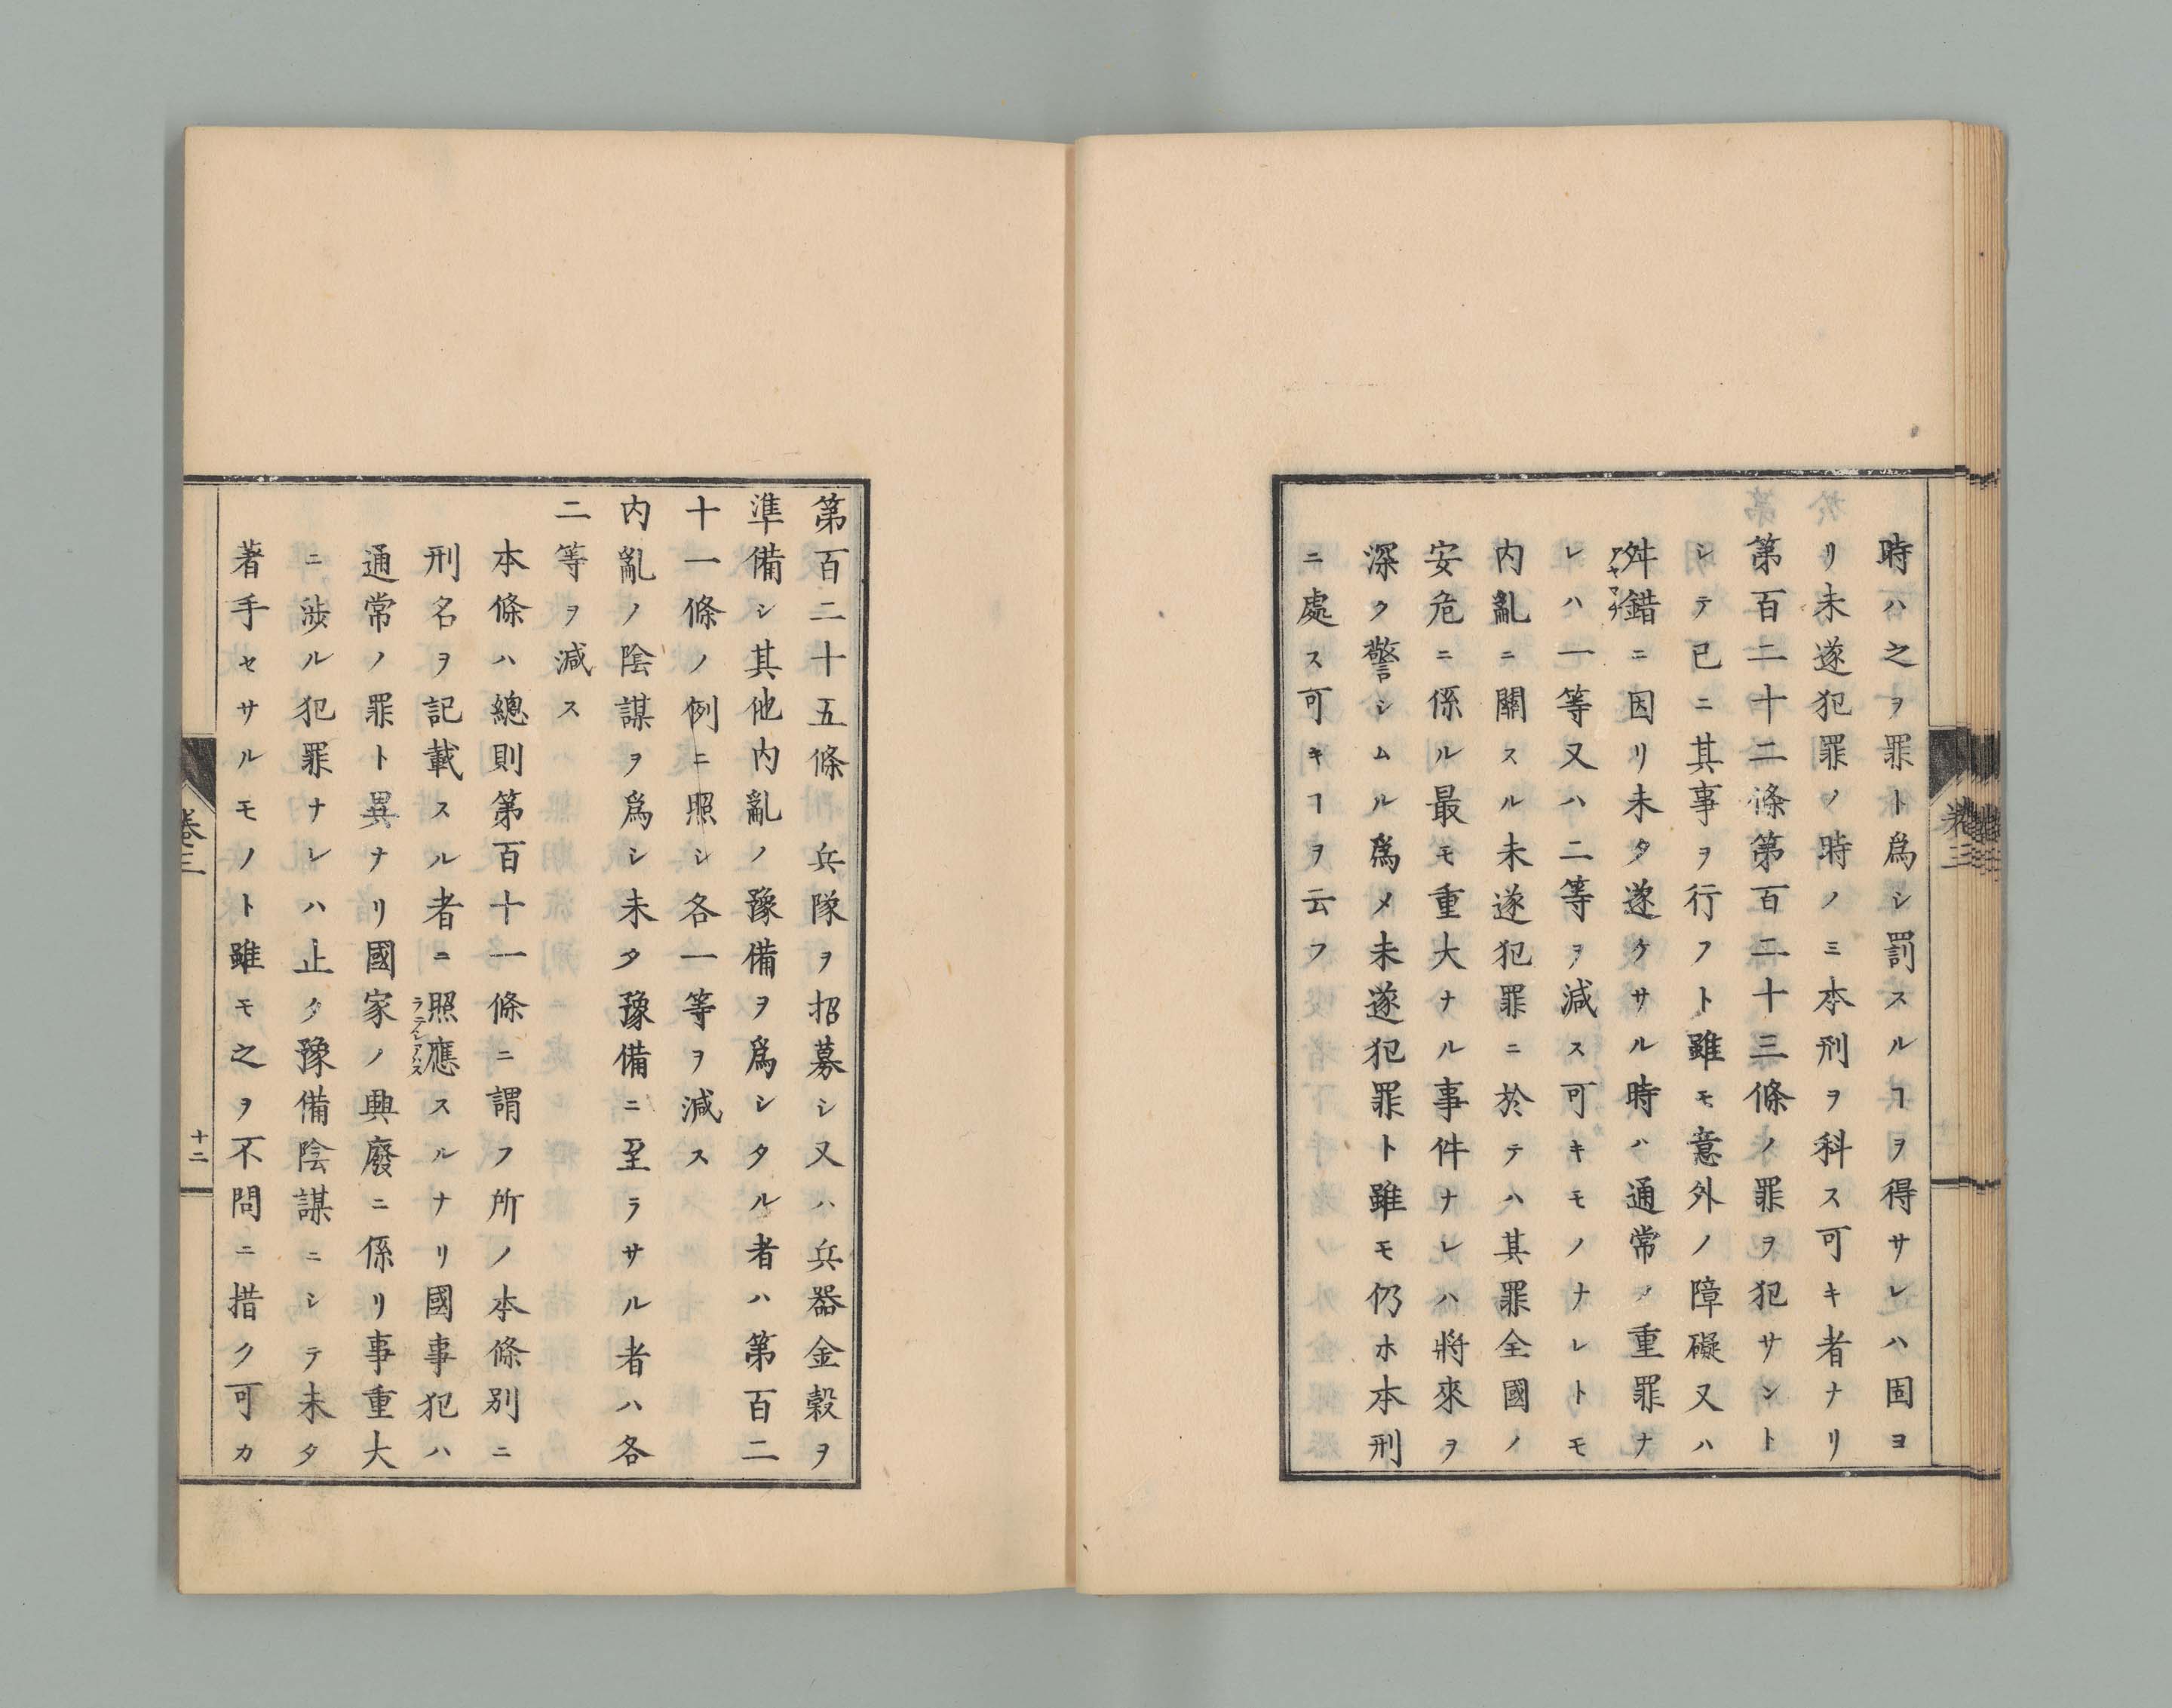 時ハ之ヲ罪ト爲シ罰スルヿヲ得サレハ固ヨ
リ未遂犯罪ノ時ノミ本刑ヲ科ス可キ者ナリ
第百二十二條第百二十三條ノ罪ヲ犯サント
シテ已ニ其事ヲ行フト雖モ意外ノ障礙又ハ
舛錯ニ因リ未タ遂ケサル時ハ通常ノ重罪ナ
レハ一等又ハ二等ヲ減ス可キモノナレトモ
内亂ニ關スル未遂犯罪ニ於テハ其罪全國ノ
安危ニ係ル最モ重大ナル事件ナレハ將來ヲ
深ク警シムル爲メ未遂犯罪ト雖モ仍ホ本刑
ニ處ス可キヿヲ云フ
卷三
第百二十五條 兵隊ヲ招募シ又ハ兵器金穀ヲ
準備シ其他内亂ノ豫備ヲ爲シタル者ハ第百二
十一條ノ例ニ照シ各一等ヲ減ス
内亂ノ陰謀ヲ爲シ未タ豫備ニ至ラサル者ハ各
二等ヲ減ス
本條ハ總則第百十一條ニ謂フ所ノ本條別ニ
刑名ヲ記載スル者ニ照應スルナリ國事犯ハ
通常ノ罪ト異ナリ國家ノ興廢ニ係リ事重大
ニ渉ル犯罪ナレハ止タ豫備陰謀ニシテ未タ
著手セサルモノト雖モ之ヲ不問ニ措ク可カ
卷三
十二